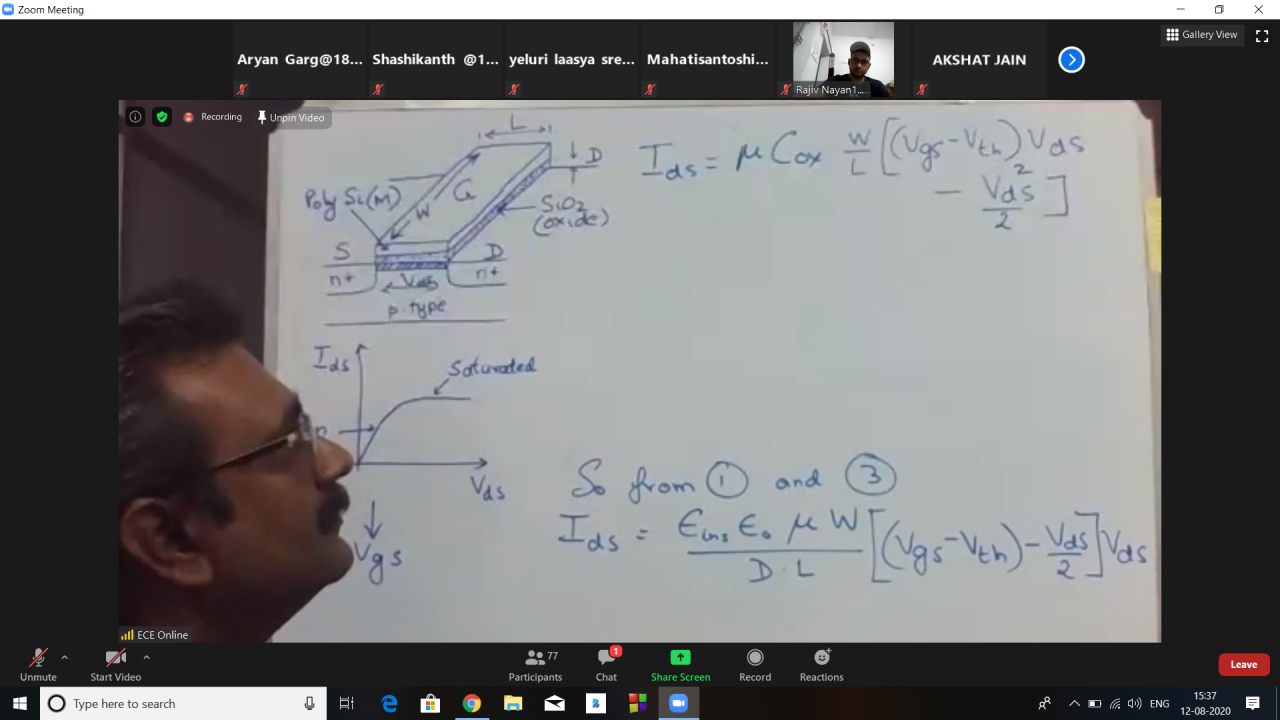 Zoom Meeting
Gallery View
Aryan Garg@18...
Shashikanth @1...
yeluri laasya sre...
Mahatisantoshi...
Rajiv Nayan1...
AKSHAT JAIN
Recording
Unpin Video
L
D
Poly Si(M)
G
W
SiO2
(oxide)
S
D
n+
Vds
n+
p-type
Ids = μ Cox W/L [(Vgs-Vth)Vds
- Vds²/2]
Ids
Saturated
Vds
Vgs
So from ① and ③
Ids = Єins Є0 μ W / D·L [(Vgs-Vth) - Vds/2] Vds
ECE Online
Unmute
Start Video
Participants
77
Chat
1
Share Screen
Record
Reactions
Leave
Type here to search
ENG
15:37
12-08-2020